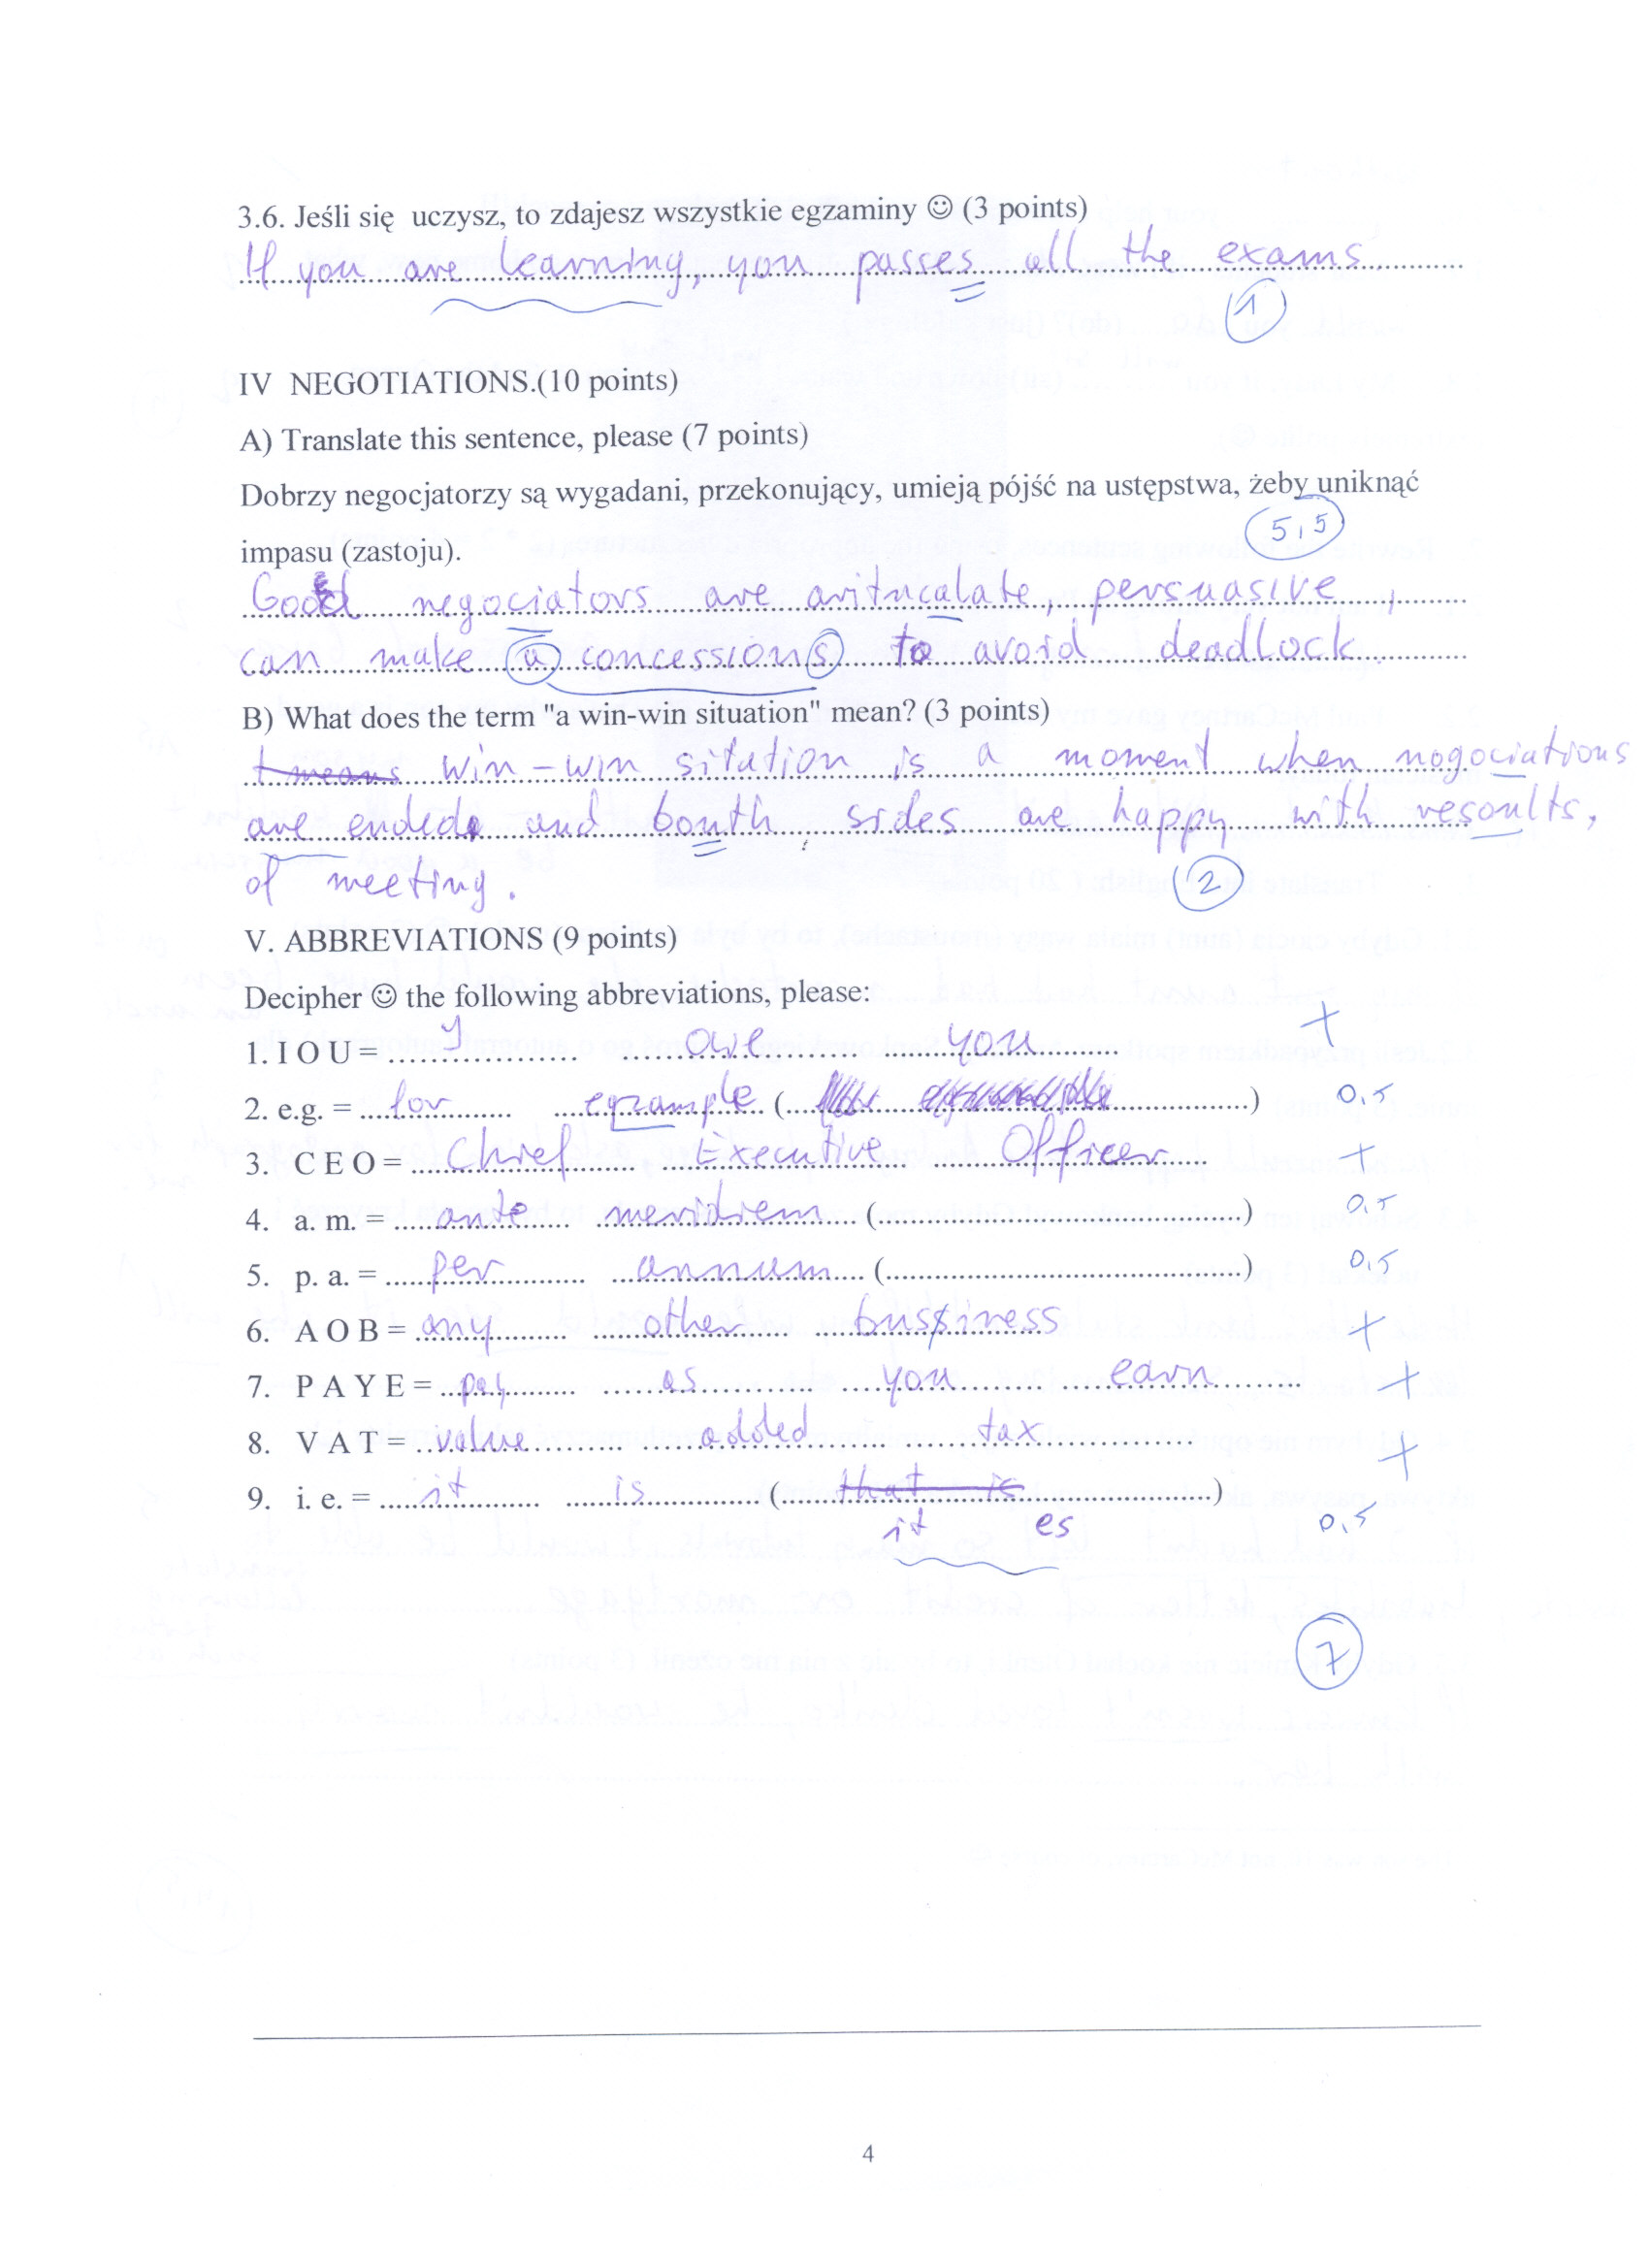 3.6. Jeśli się uczysz, to zdajesz wszystkie egzaminy ☺ (3 points)
If you are learning, you passes all the exams.
1
IV NEGOTIATIONS.(10 points)
A) Translate this sentence, please (7 points)
Dobrzy negocjatorzy są wygadani, przekonujący, umieją pójść na ustępstwa, żeby uniknąć
5,5
impasu (zastoju).
Good negociators are aritucalate, persuasive,
can make a concessions to avoid deadlock.
B) What does the term "a win-win situation" mean? (3 points)
t means win-win sitation is a moment when nogociations
are ended, and bouth sides are happy with resoults,
of meeting.
2
V. ABBREVIATIONS (9 points)
Decipher ☺ the following abbreviations, please:
1. I O U = I owe you +
2. e.g. = for egzample ( ) 0,5
3. C E O = Chief Executive Officer +
4. a. m. = ante meridiem ( ) 0,5
5. p. a. = per annum ( ) 0,5
6. A O B = any other bussiness +
7. P A Y E = pay as you earn +
8. V A T = value added tax +
9. i. e. = it is (that is)
it es 0,5
7
4